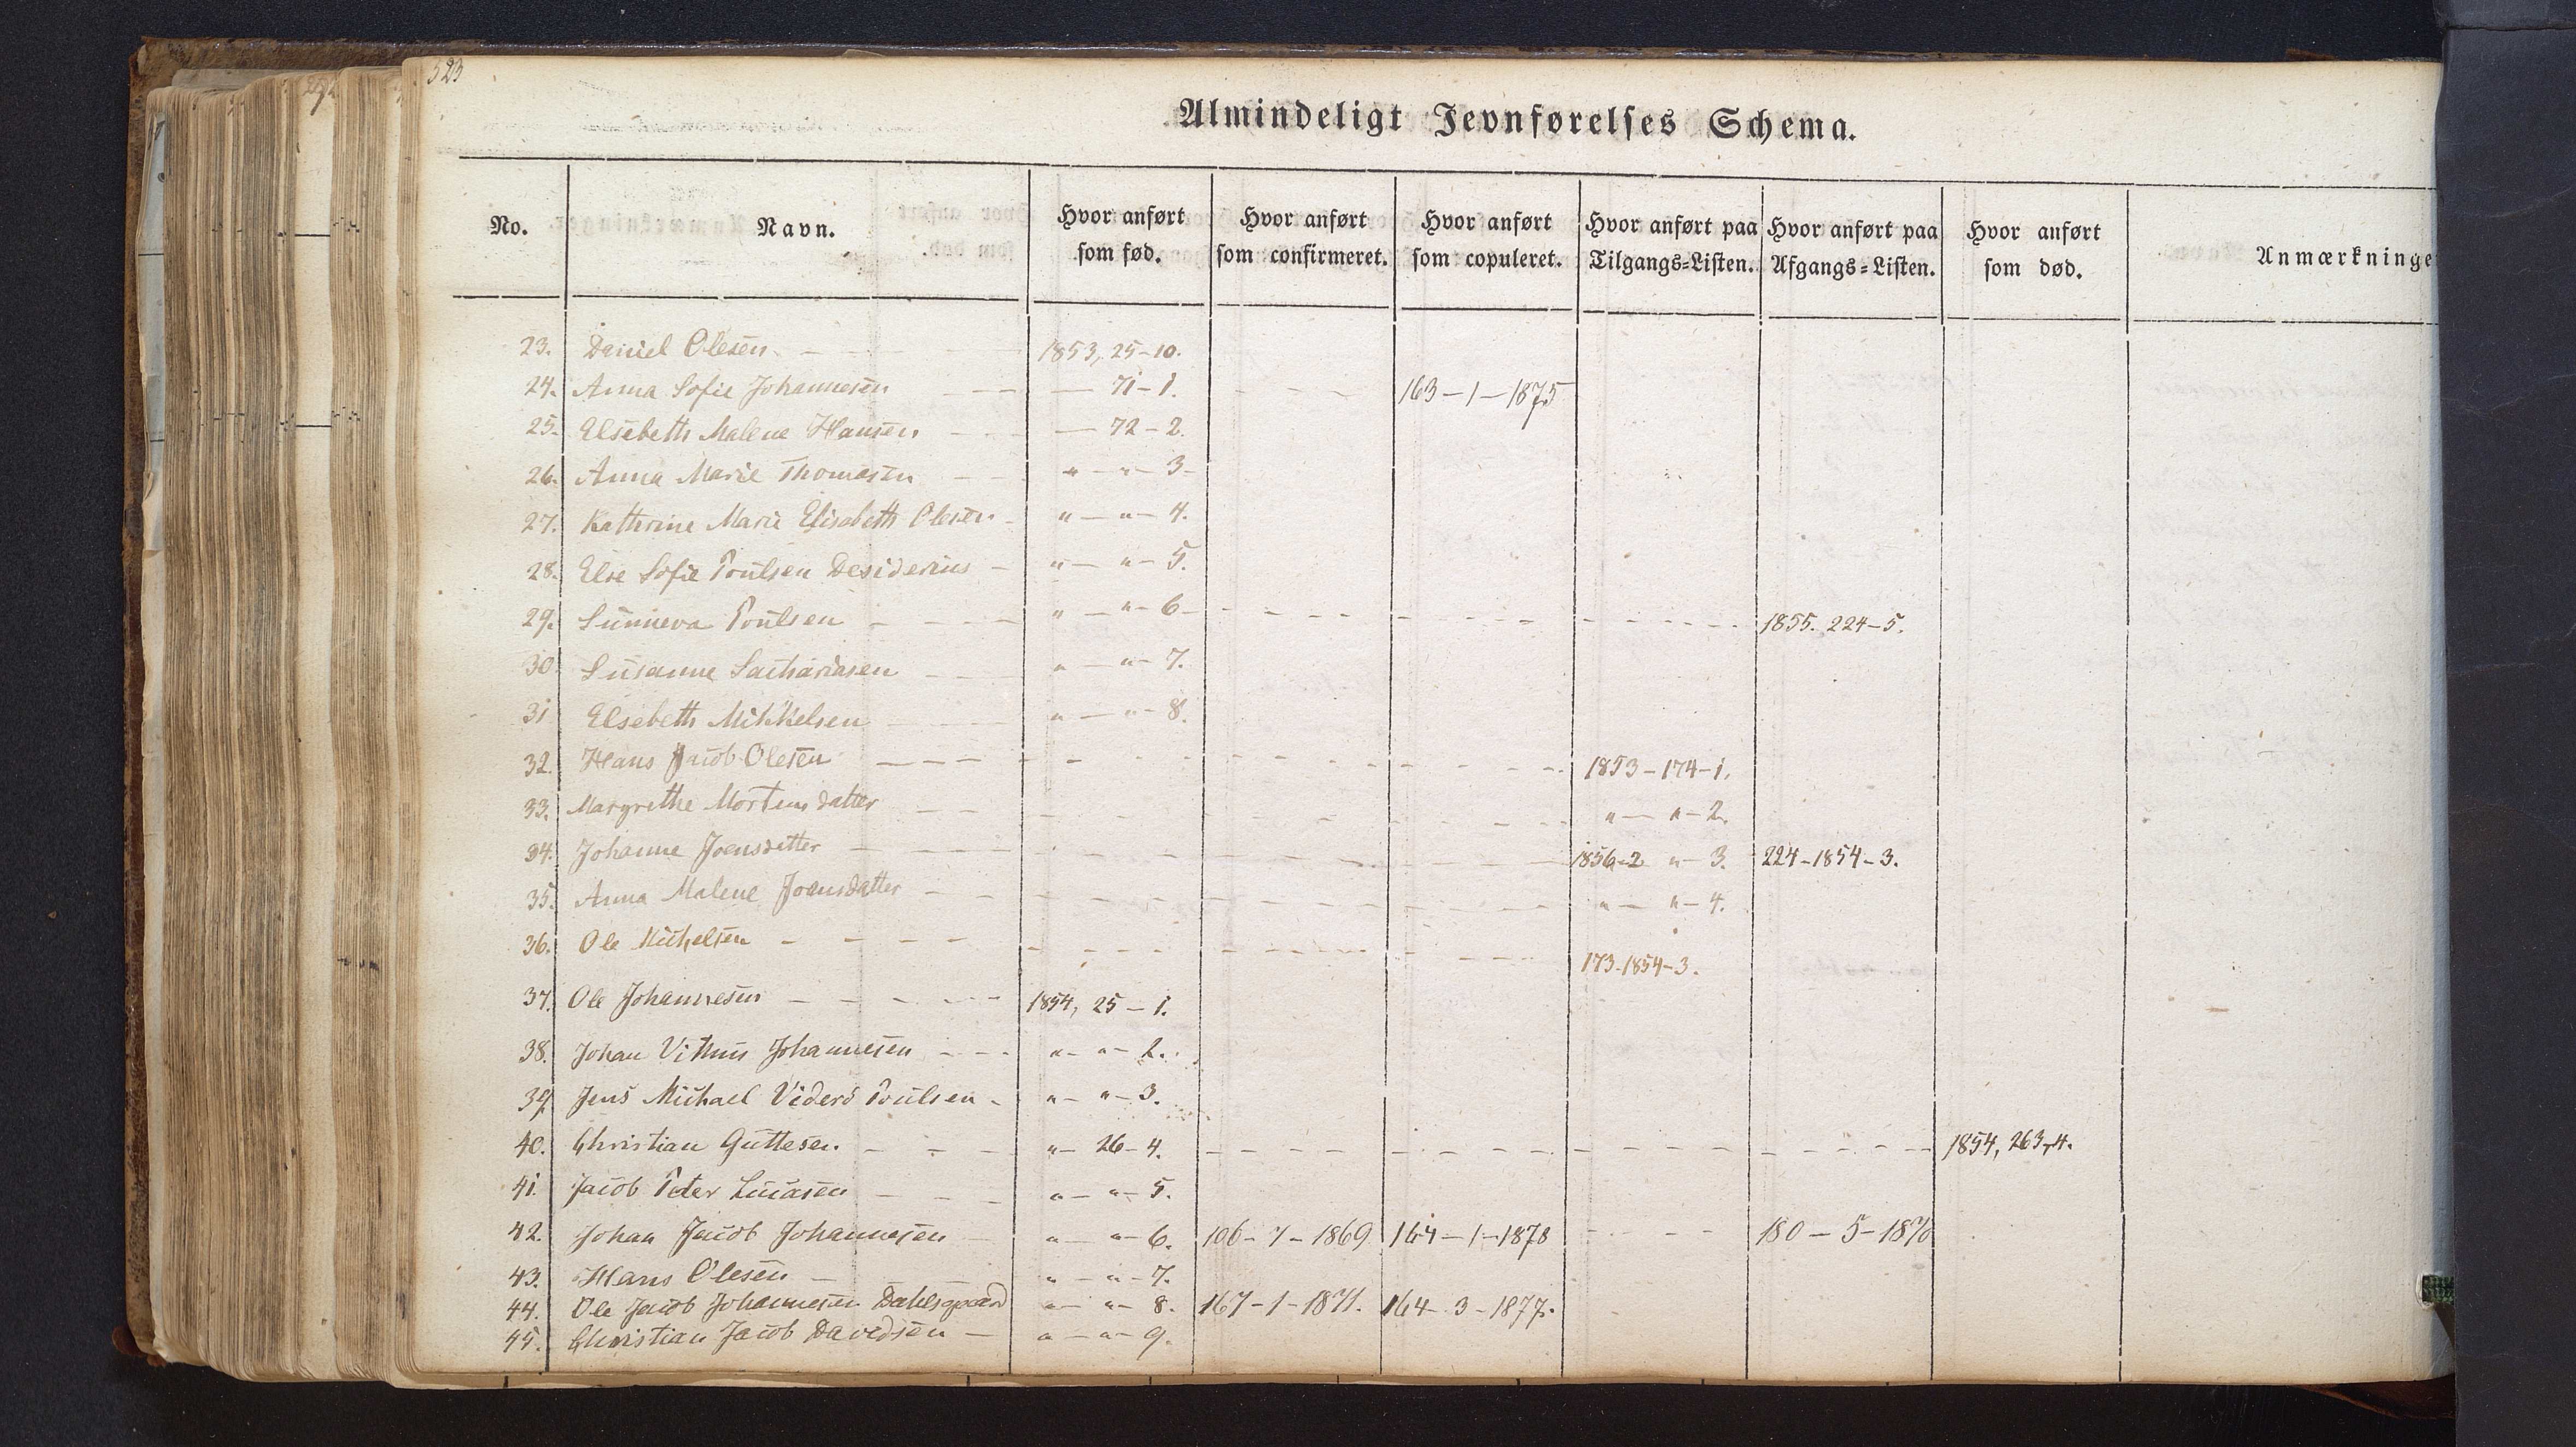 523
Almindeligt Jevnførelses Schema.
No. Navn. Hvor anført som fød. Hvor anført som confirmeret. Hvor anført som copuleret. Hvor anført paa Tilgangs=Listen. Hvor anført paa Afgangs=Listen. Hvor anført som død. Anmærkninge
23. Daniel Olesen. 1853, 25-10.
24. Anna Sofie Johannesen — 71-1. 163-1-1875
25. Elsebeth Malene Hansen — 72-2.
26. Anna Marie Thomasen " — " — 3-
27. Kathrine Marie Elisabeth Olesen " — " — 4.
28. Else Sofie Poulsen Desiderius " — " — 5.
29. Sunneva Poulsen " — " — 6 1855. 224-5.
30 Susanne Sachariasen " — " — 7.
31 Elsebeth Mikkelsen " — " — 8.
32. Hans Jacob Olesen 1853-174-1.
33. Margrethe Mortensdatter " — " — 2.
34. Johanne Joensdatter 1856-2 " — 3. 224-1854-3.
35. Anna Malene Joensdatter " — " — 4.
36. Ole Michelsen 173-1854-3.
37. Ole Johannesen 1854, 25-1.
38. Johan Vithus Johannesen " — " — 2.
39 Jens Michael Viderø Poulsen " — " — 3.
40. Christian Guttesen " — 26-4. 1854, 263,4.
41. Jacob Peter Lucasen " — " — 5.
42. Johan Jacob Johannesen " — " — 6. 106-7-1869 164-1-1878 180-5-1870
43. Hans Olesen " — " — 7.
44. Ole Jacob Johannesen Dahlsgaard " — " — 8. 167-1-1871. 164-3-1877.
45. Christian Jacob Davidsen " — " — 9.